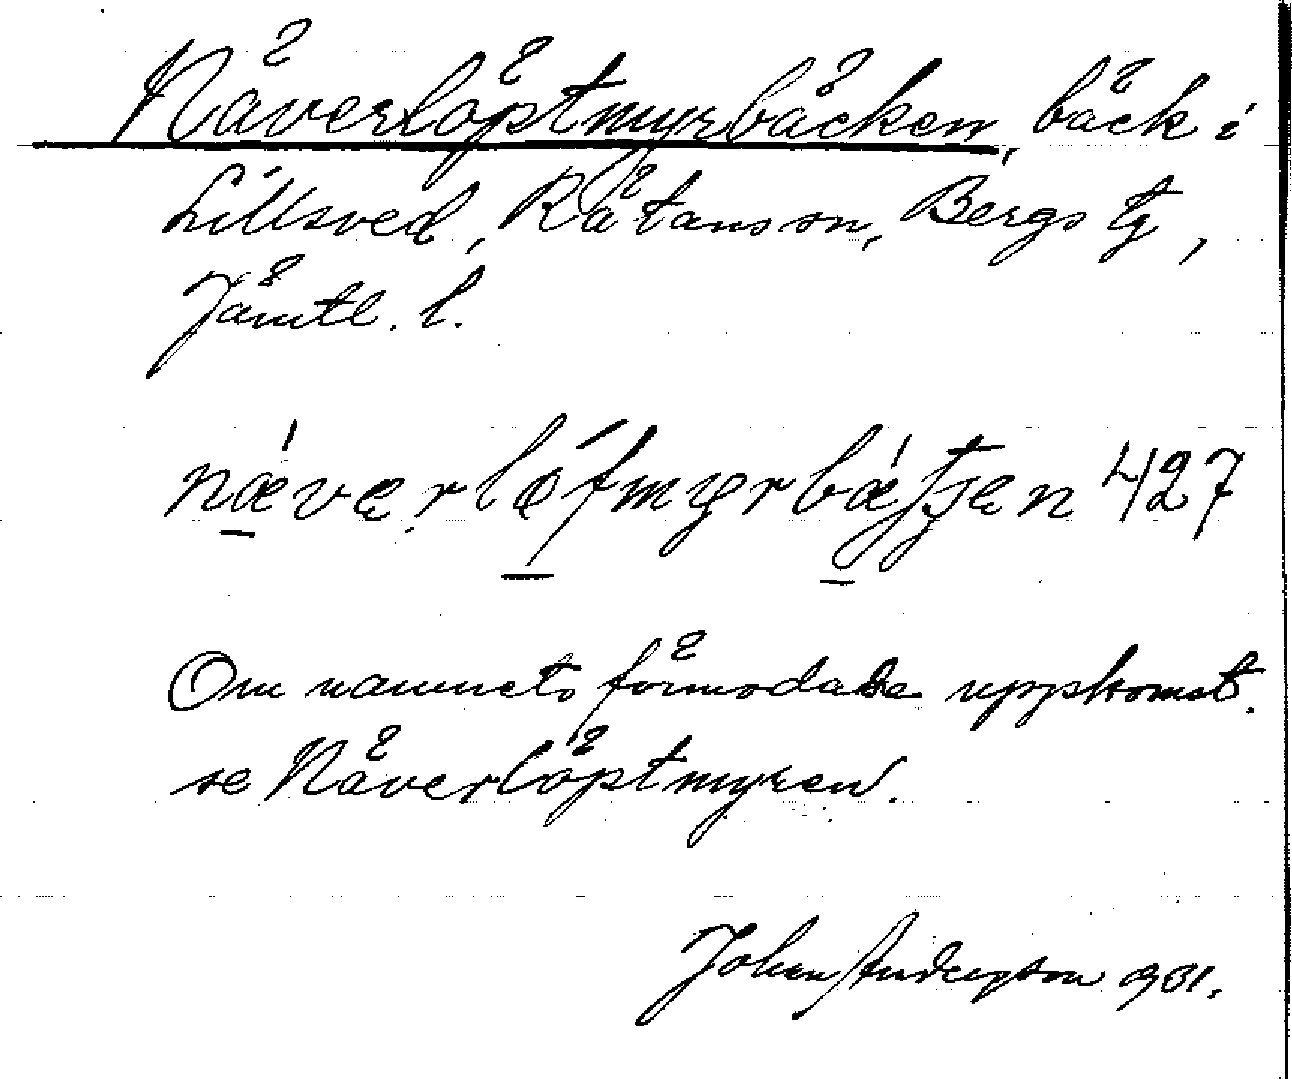 Näverlöptmyrbäcken, bäck i
Lillsved, Rätans sn, Bergs tg,
Jämtl. l.
næværlǿfmyrbæʃʃæn 427
Om namnets förmodade uppkomst.
se Näverlöptmyren.
Johan Andersson 931.